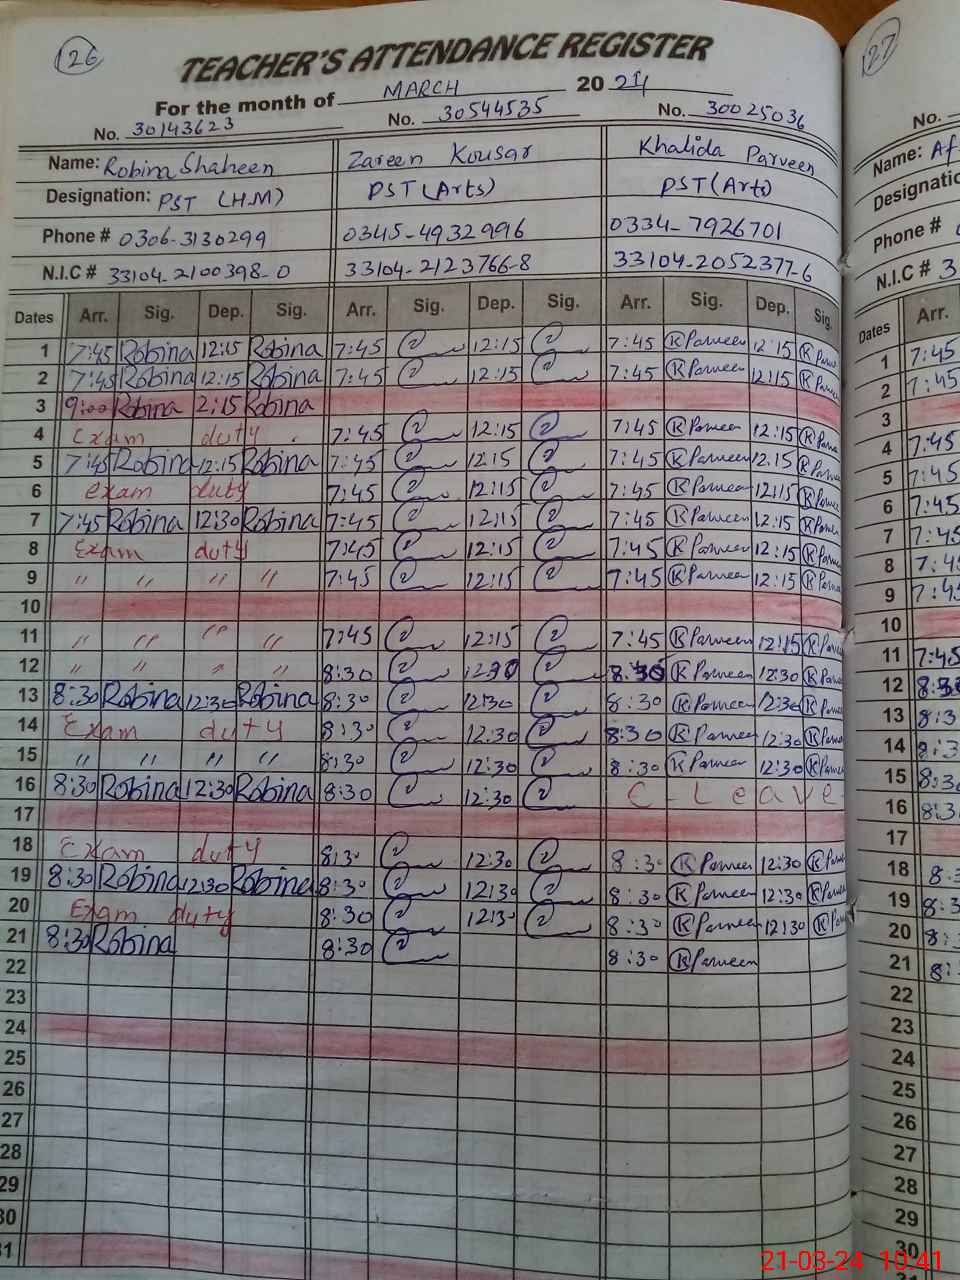 126
TEACHER'S ATTENDANCE REGISTER
For the month of MARCH 2024
No. 30143623 No. 30544535 No. 30025036
Name: Robina Shaheen Zareen Kousar Khalida Parveen
Designation: PST (H.M) PST (Arts) PST (Arts)
Phone # 0306-3130299 0345-4932996 0334-7926701
N.I.C # 33104-2100398-0 33104-2123766-8 33104-2052377-6
Dates Arr. Sig. Dep. Sig. Arr. Sig. Dep. Sig. Arr. Sig. Dep. Sig.
1 7:45 Robina 12:15 Robina 7:45 12:15 7:45 K Parveen 12:15 K Parv
2 7:45 Robina 12:15 Robina 7:45 12:15 7:45 K Parveen 12:15 K Parve
3 9:00 Robina 2:15 Robina
4 Exam duty . 7:45 12:15 7:45 K Parveen 12:15 K Parv
5 7:45 Robina 12:15 Robina 7:45 12:15 7:45 K Parveen 12.15 K Parv
6 exam duty 7:45 12:15 7:45 K Parveen 12:15 K Parv
7 7:45 Robina 12:30 Robina 7:45 12:15 7:45 K Parveen 12:15 K Parve
8 Exam duty 7:45 12:15 7:45 K Parveen 12:15 K Parv
9 " " " " 7:45 12:15 7:45 K Parveen 12:15 K Parv
10
11 " " " " 7:45 12:15 7:45 K Parveen 12:15 K Parv
12 " " " " 8:30 12:30 8:30 K Parveen 12:30 K Par
13 8:30 Robina 12:30 Robina 8:30 12:30 8:30 K Parveen 12:30 K Par
14 Exam duty 8:30 12:30 8:30 K Parveen 12:30 K Parv
15 " " " " 8:30 12:30 8:30 K Parveen 12:30 K Parv
16 8:30 Robina 12:30 Robina 8:30 12:30 C-Leave
17
18 Exam duty 8:30 12:30 8:30 K Parveen 12:30 K Parv
19 8:30 Robina 12:30 Robina 8:30 12:30 8:30 K Parveen 12:30 K Parv
20 Exam duty 8:30 12:30 8:30 K Parveen 12:30 K Par
21 8:30 Robina 8:30 8:30 K Parveen
22
23
24
25
26
27
28
29
30
31
127
No.
Name: Af
Designatio
Phone #
N.I.C # 3
Dates Arr.
1 7:45
2 7:45
3
4 7:45
5 7:45
6 7:45
7 7:45
8 7:45
9 7:45
10
11 7:45
12 8:30
13 8:3
14 8:3
15 8:30
16 8:3
17
18 8:3
19 8:3
20 8:3
21 8:
22
23
24
25
26
27
28
29
30
21-03-24 10:41